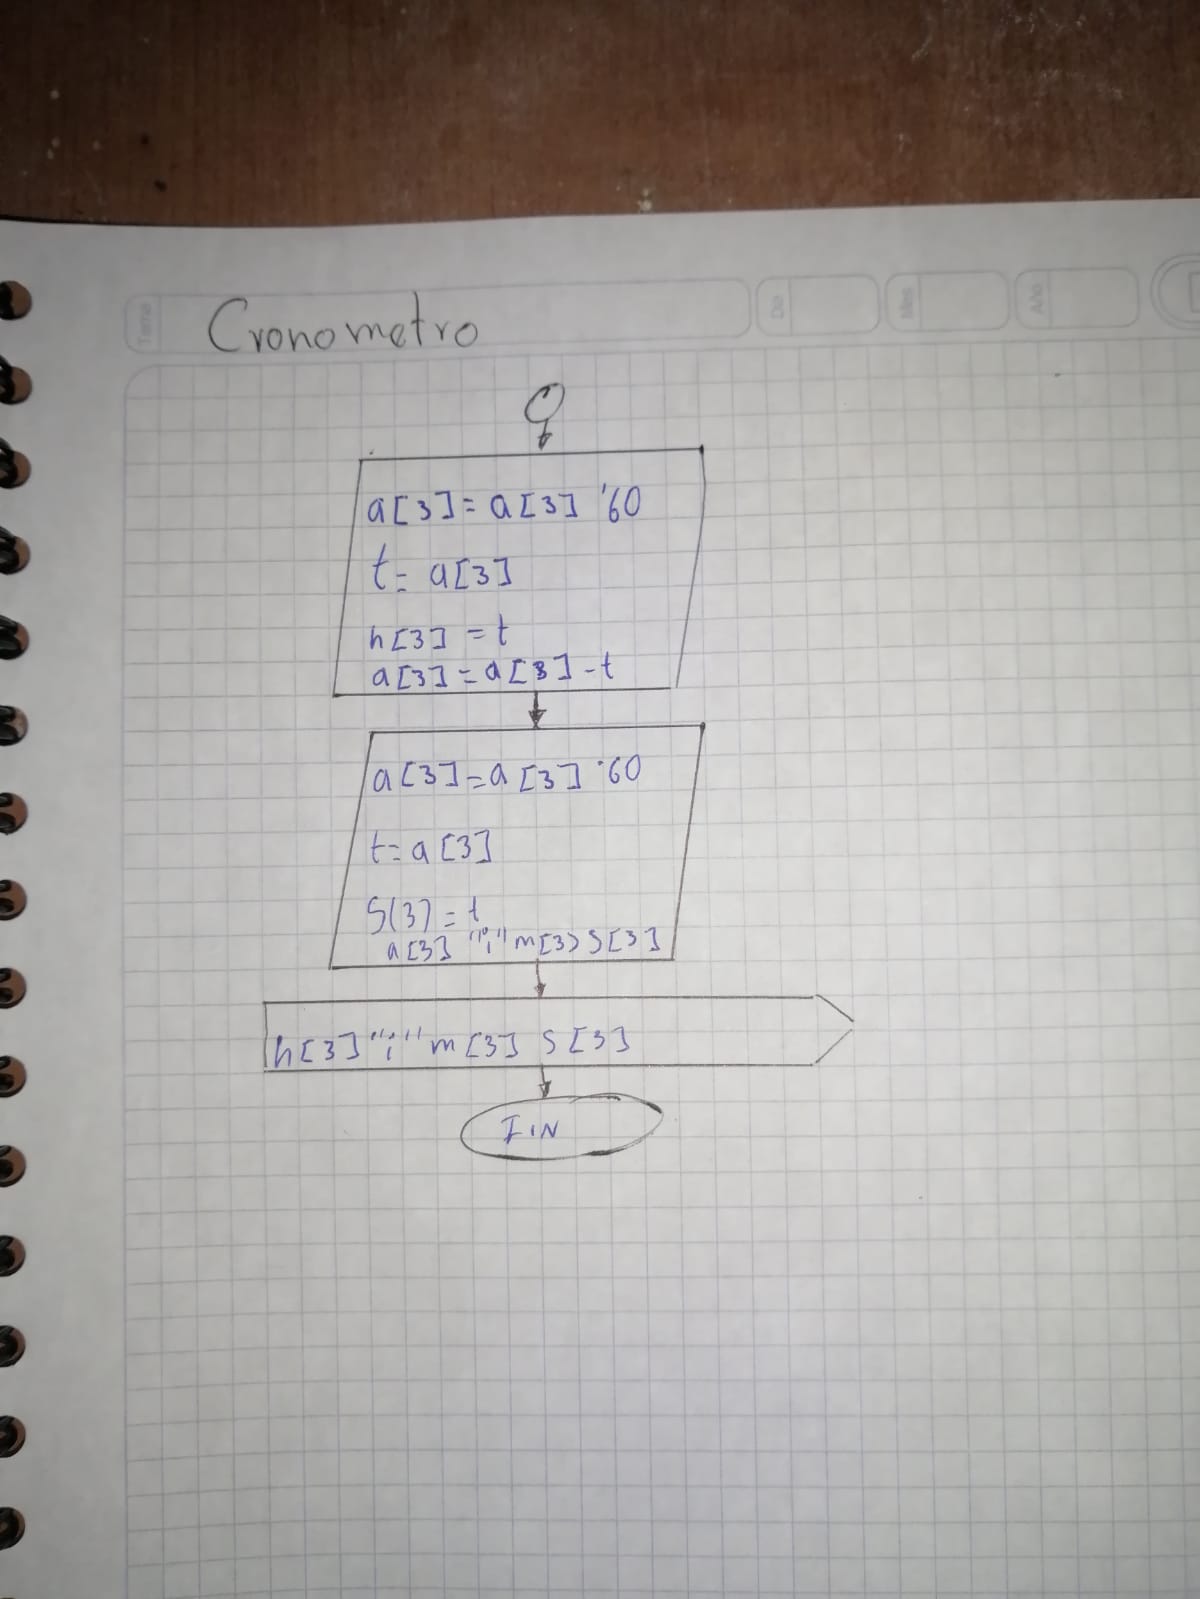 Tema
Cronometro
Día
Mes
Año
a[3]=a[3] '60
t=a[3]
h[3]=t
a[3]=a[3]-t
a[3]=a[3] ·60
t=a[3]
S(3]=t
a[3] ":" m[3) S[3]
h[3] ":" m[3] S[3]
FIN